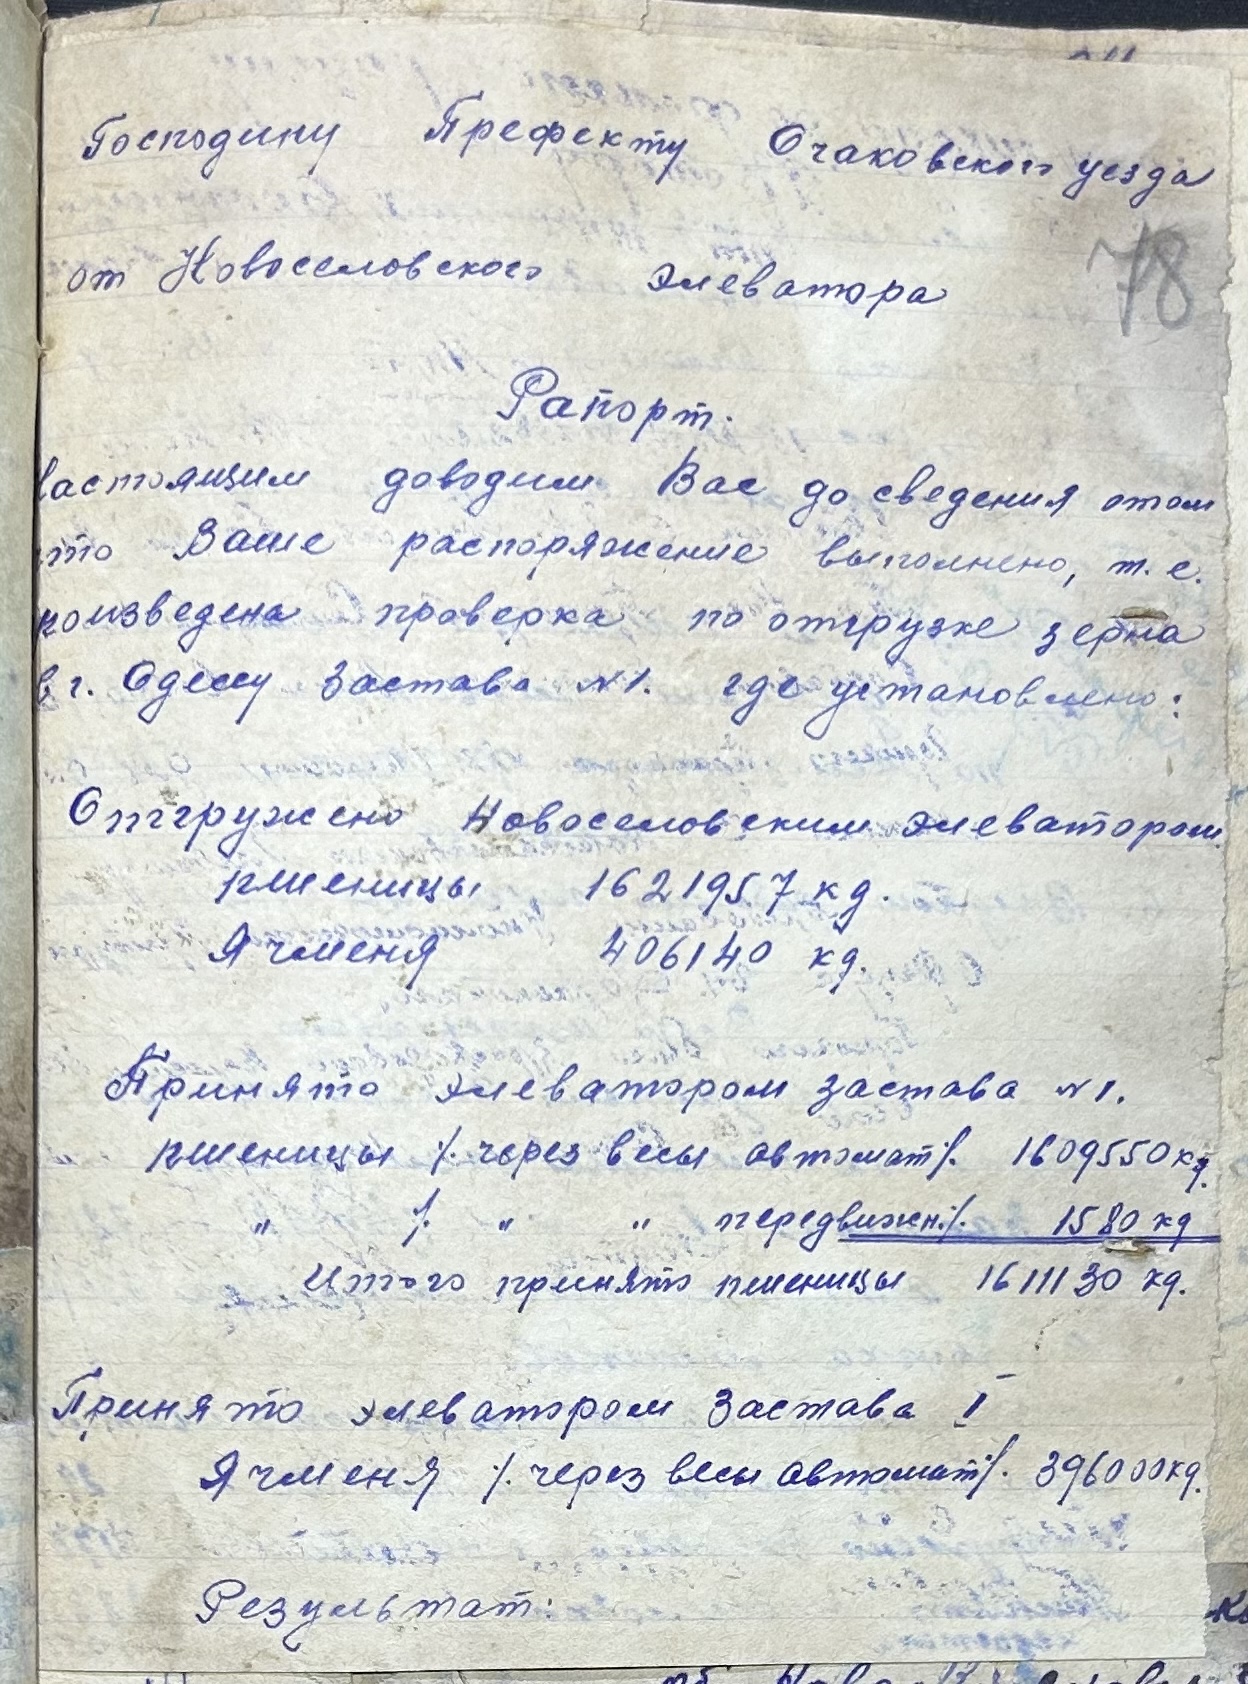 Господину Префекту Очаковского уезда
78
от Новоселовского элеватора
Рапорт.
Настоящим доводим Вас до сведения отом
что Ваше распоряжение выполнено, т. е.
произведена проверка по отгрузке зерна
в г. Одессу Застава №1. где установлено:
Отгружено Новоселовским элеватором
пшеницы 1621957 кг.
Ячменя 406140 кг.
Принято элеватором застава №1.
пшеницы /. через весы автомат/. 1609550 кг.
„ /. „ „ передвижн./. 1580 кг
Итого принято пшеницы 1611130 кг.
Принято элеватором Застава I
Ячменя /. через весы автомат/. 396000 кг.
Результат: